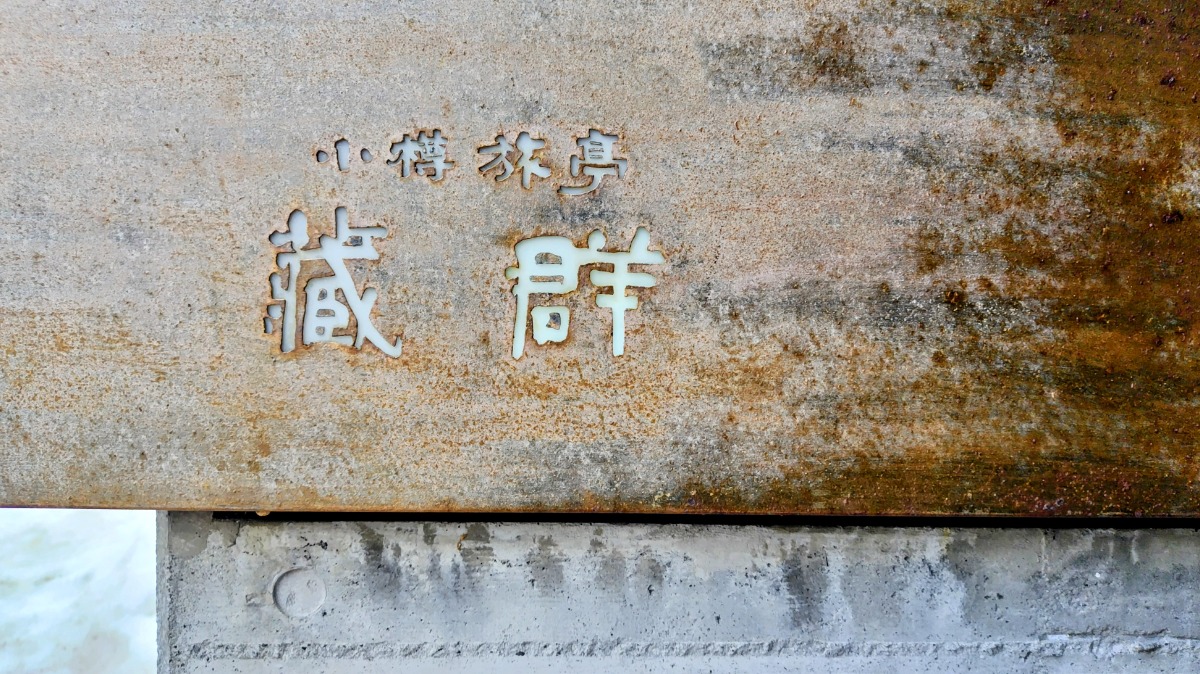 小樽旅亭
藏群